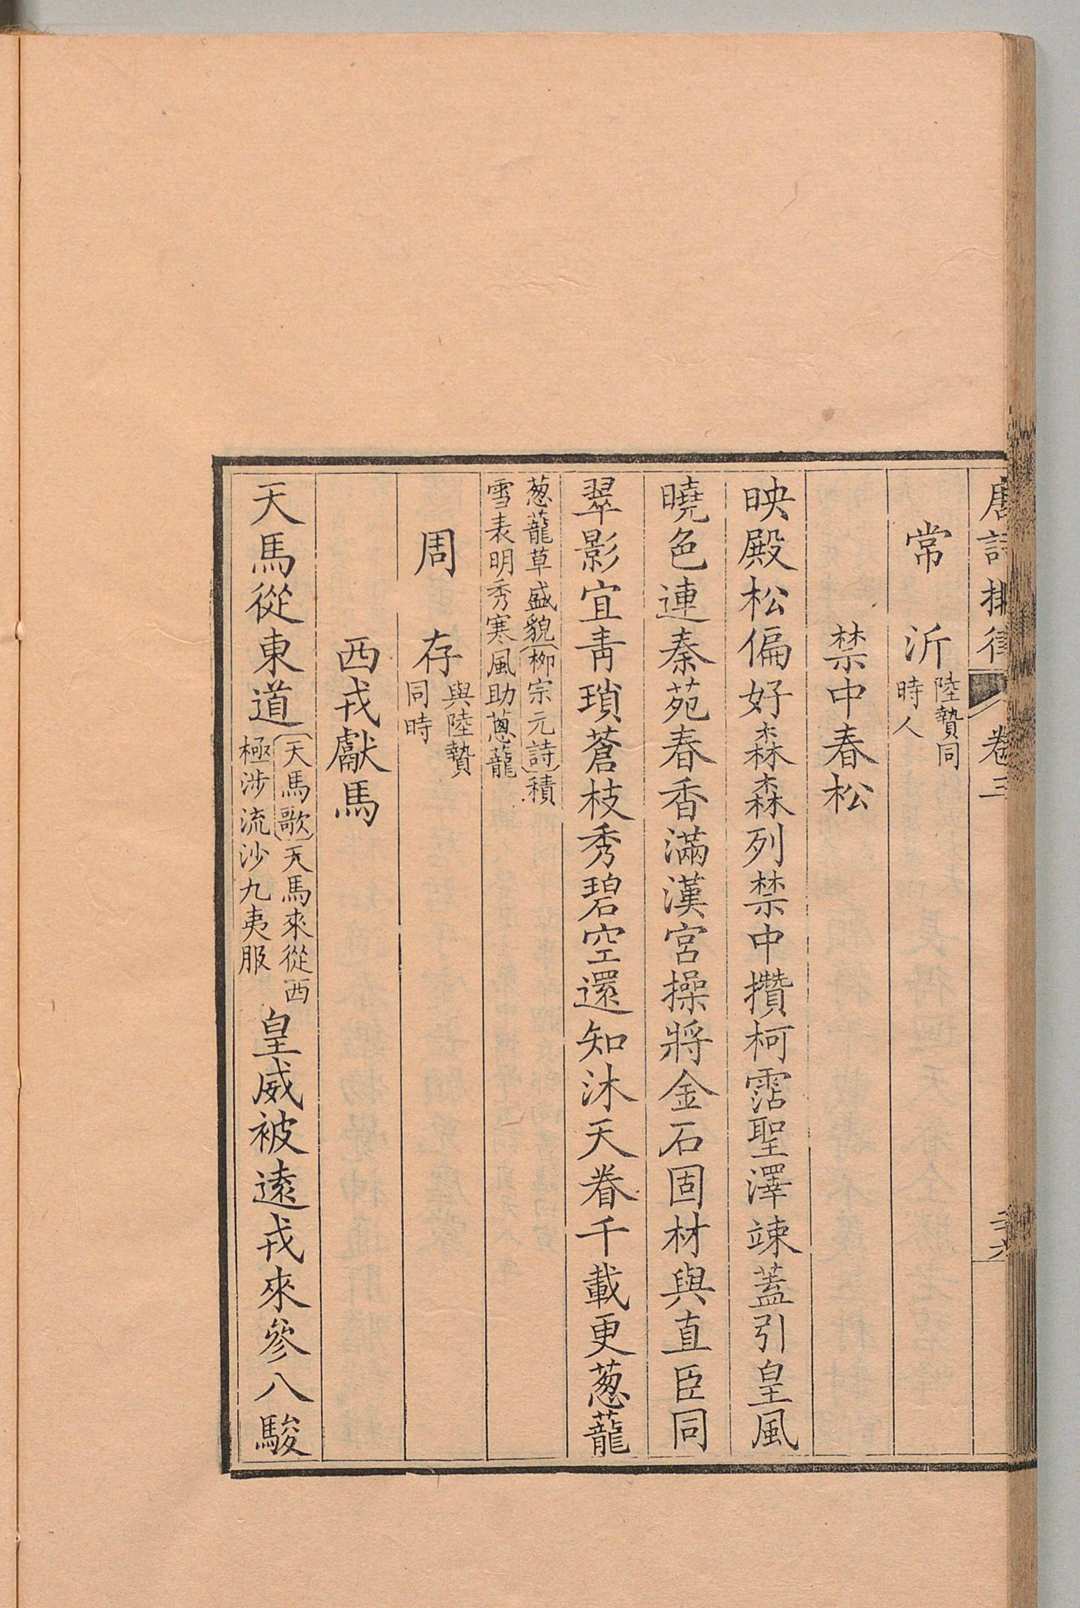 唐詩排律 卷三
常沂陸贄同時人
禁中春松
映殿松偏好森森列禁中攢柯霑聖澤竦蓋引皇風
曉色連秦苑春香滿漢宮操將金石固材與直臣同
翠影宜靑瑣蒼枝秀碧空還知沐天眷千載更葱蘢
葱蘢草盛貌柳宗元詩積
雪表明秀寒風助蔥蘢
周存與陸贄同時
西戎獻馬
天馬從東道天馬歌天馬來從西極涉流沙九夷服皇威被遠戎來參八駿